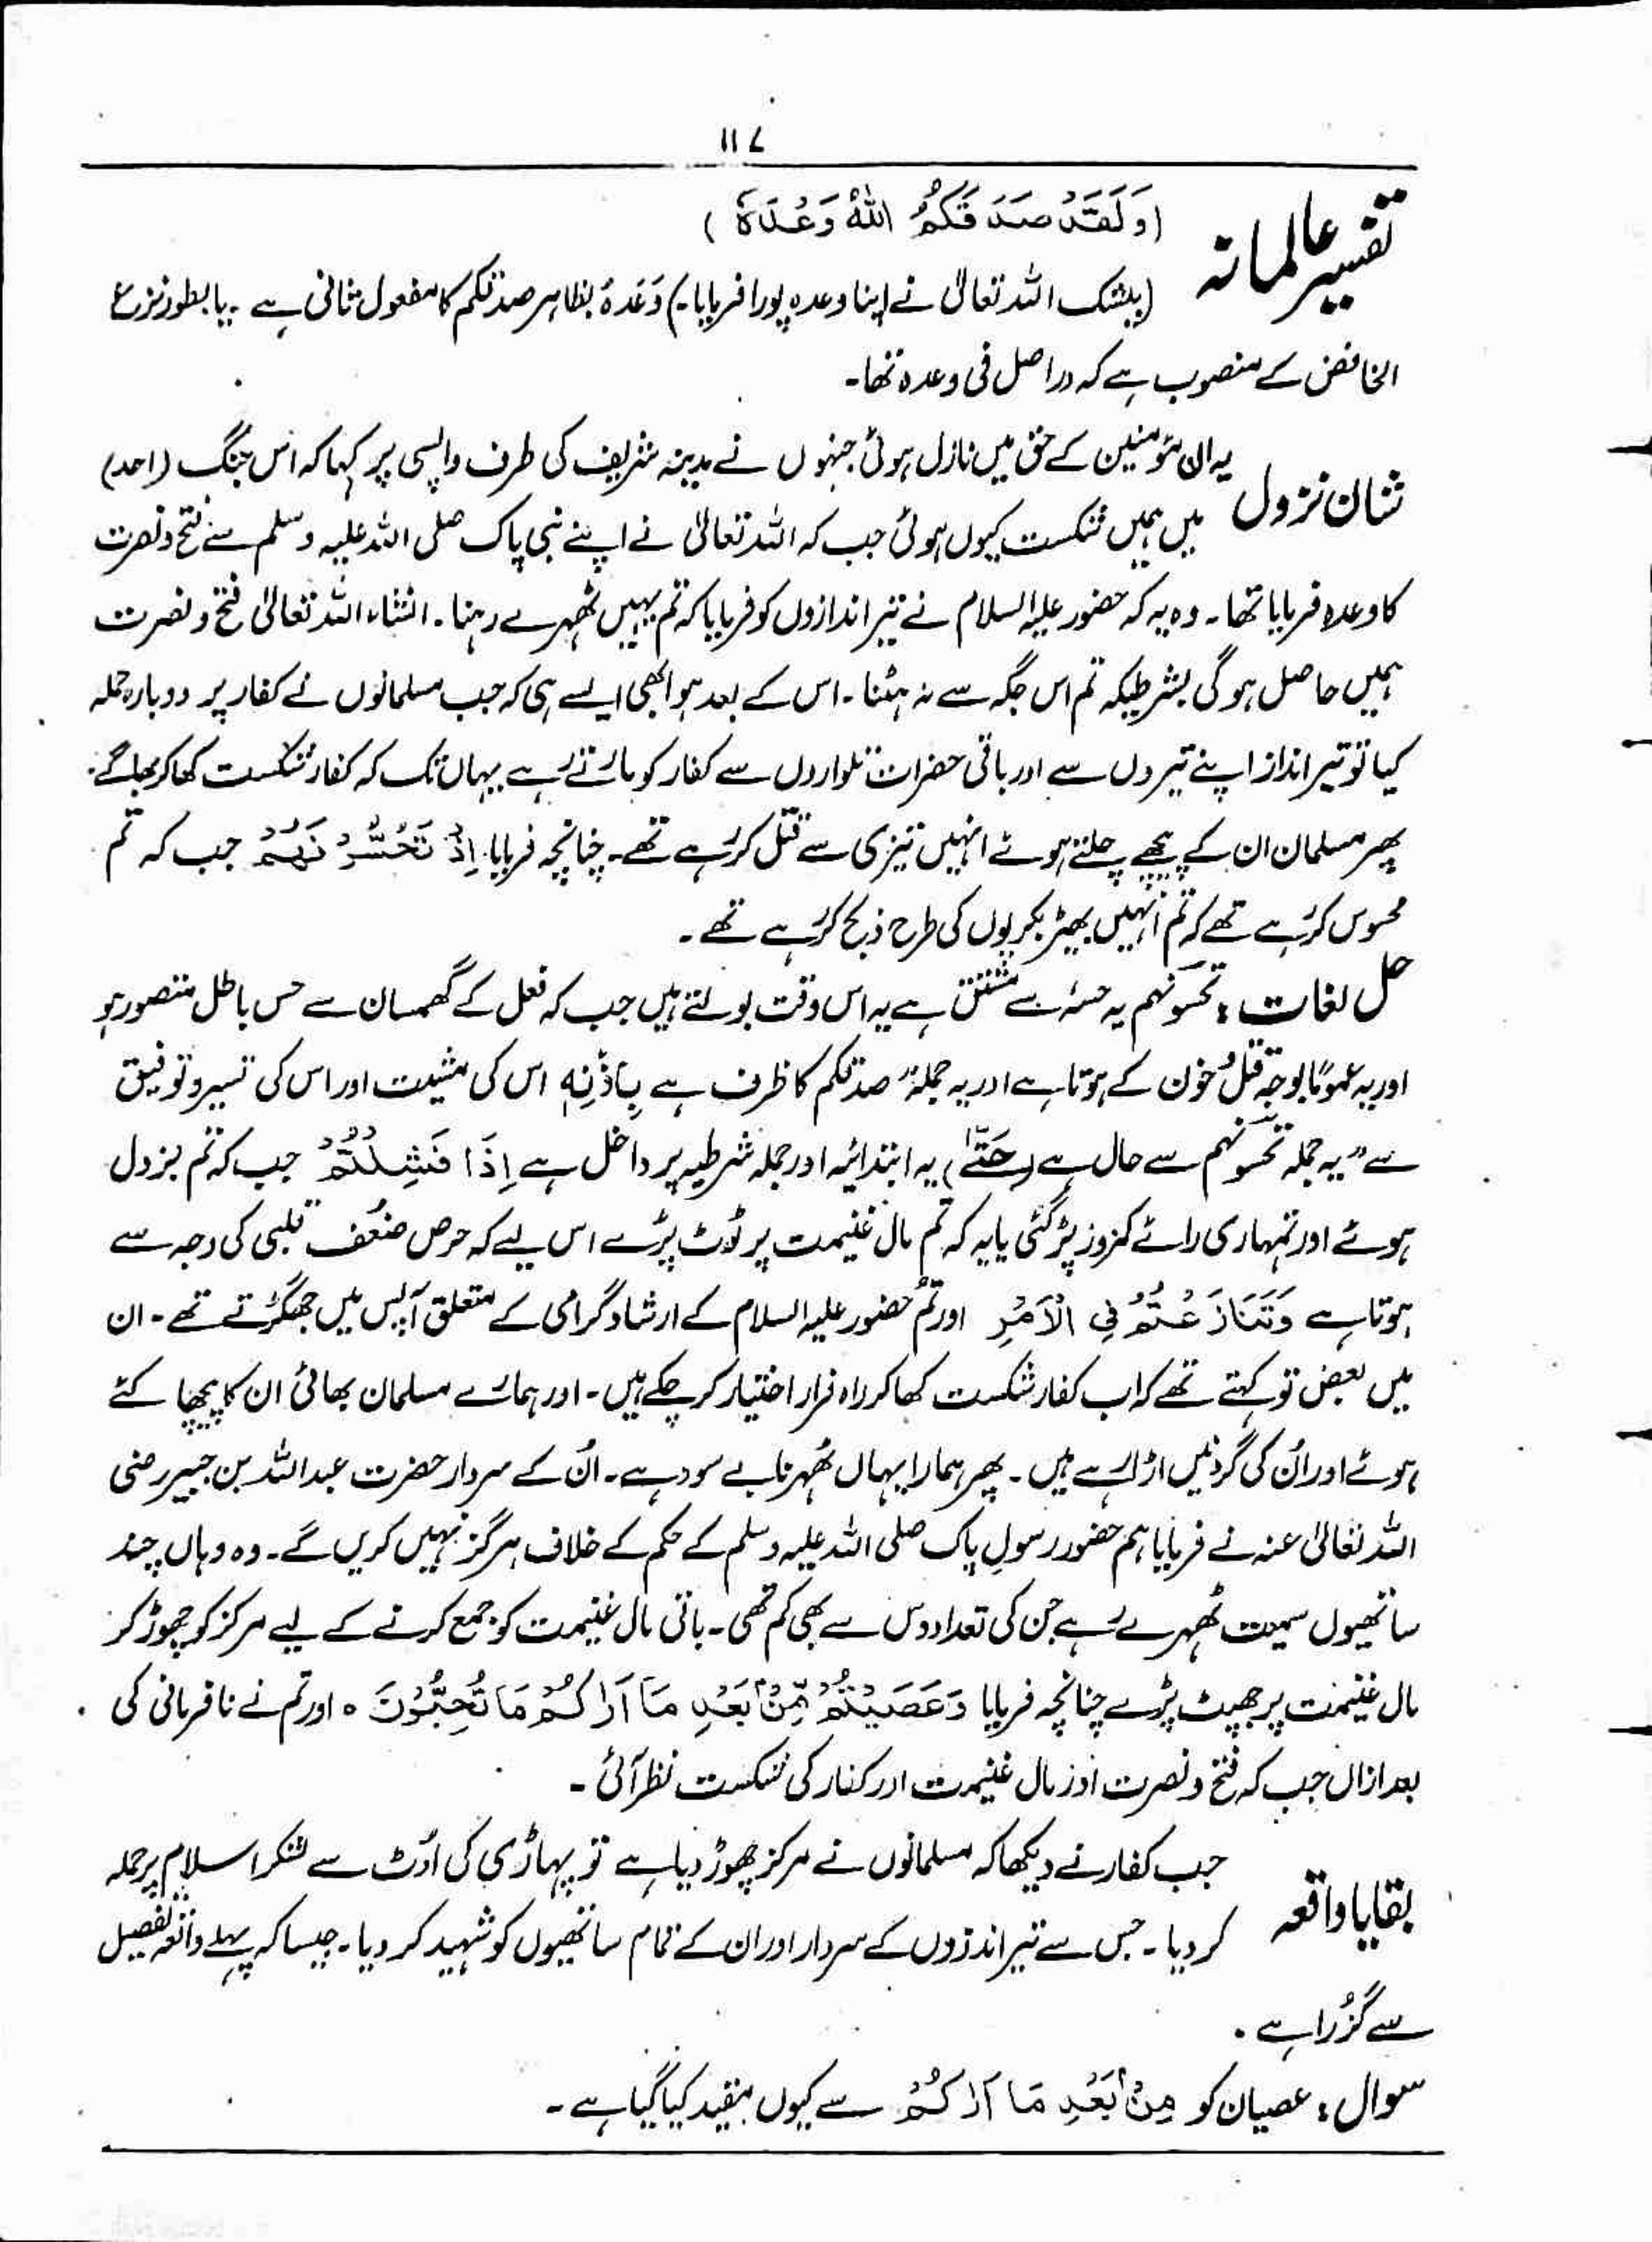 ۱۱۷
تفسیر عالمانہ (وَلَقَدْ صَدَقَكُمُ اللّٰهُ وَعْدَهٗ)
(بیشک اللہ تعالیٰ نے اپنا وعدہ پورا فرمایا۔) وَعْدَہٗ بظاہر صدقکم کا مفعول ثانی ہے۔ یا بطور نزع
الخافض کے منصوب ہے کہ دراصل فی وعدہ تھا۔
شان نزول یہ ان مؤمنین کے حق میں نازل ہوئی جنہوں نے مدینہ شریف کی طرف واپسی پر کہا کہ اس جنگ (احد)
میں ہمیں شکست کیوں ہوئی جب کہ اللہ تعالیٰ نے اپنے نبی پاک صلی اللہ علیہ وسلم سے فتح و نصرت
کا وعدہ فرمایا تھا۔ وہ یہ کہ حضور علیہ السلام نے تیر اندازوں کو فرمایا کہ تم یہیں ٹھہرے رہنا۔ انشاء اللہ تعالیٰ فتح و نصرت
ہمیں حاصل ہو گی بشرطیکہ تم اس جگہ سے نہ ہٹنا۔ اس کے بعد ہوا بھی ایسے ہی کہ جب مسلمانوں نے کفار پر دوبارہ حملہ
کیا تو تیر انداز اپنے تیروں سے اور باقی حضرات تلواروں سے کفار کو مارتے رہے یہاں تک کہ کفار شکست کھا کر بھاگے۔
پھر مسلمان ان کے پیچھے چلتے ہوئے انہیں تیزی سے قتل کر رہے تھے۔ چنانچہ فرمایا اِذْ تَحُسُّوْنَهُمْ جب کہ تم
محسوس کر رہے تھے کہ تم انہیں بھیڑ بکریوں کی طرح ذبح کر رہے تھے۔
حل لغات: تحسونہم یہ حسہٗ سے مشتق ہے یہ اس وقت بولتے ہیں جب کہ فعل کے گھمسان سے حس باطل متصور ہو
اور یہ عموماً بوجہ قتل خون کے ہوتا ہے اور یہ جملہ صدقکم کا ظرف ہے بِاِذْنِهٖ اس کی مشیت اور اس کی تسیر و توفیق
سے" یہ جملہ تحسونہم سے حال ہے (حَتّٰی) یہ ابتدائیہ اور جملہ شرطیہ پر داخل ہے اِذَا فَشِلْتُمْ جب کہ تم بزدل
ہوئے اور تمہاری رائے کمزور پڑ گئی یا یہ کہ تم مال غنیمت پر ٹوٹ پڑے اس لیے کہ حرص ضعف قلبی کی وجہ سے
ہوتا ہے وَتَنَازَعْتُمْ فِی الْاَمْرِ اور تم حضور علیہ السلام کے ارشاد گرامی کے متعلق آپس میں جھگڑتے تھے۔ ان
میں بعض تو کہتے تھے کہ اب کفار شکست کھا کر راہ فرار اختیار کر چکے ہیں۔ اور ہمارے مسلمان بھائی ان کا پیچھا کئے
ہوئے اور اُن کی گردنیں اڑا رہے ہیں۔ پھر ہمارا یہاں ٹھہرنا بے سود ہے۔ اُن کے سردار حضرت عبداللہ بن جبیر رضی
اللہ تعالیٰ عنہ نے فرمایا ہم حضور رسولِ پاک صلی اللہ علیہ وسلم کے حکم کے خلاف ہرگز نہیں کریں گے۔ وہ وہاں چند
ساتھیوں سمیت ٹھہرے رہے جن کی تعداد دس سے بھی کم تھی۔ باقی مال غنیمت کو جمع کرنے کے لیے مرکز کو چھوڑ کر
مال غنیمت پر جھپٹ پڑے چنانچہ فرمایا وَعَصَیْتُمْ مِّنْۢ بَعْدِ مَاۤ اَرٰىكُمْ مَا تُحِبُّوْنَ ہ اور تم نے نافرمانی کی
بعد ازاں جب کہ فتح و نصرت اور مال غنیمت اور کفار کی شکست نظر آئی۔
بقایا واقعہ جب کفار نے دیکھا کہ مسلمانوں نے مرکز چھوڑ دیا ہے تو پہاڑی کی اوٹ سے لشکر اسلام پر حملہ
کر دیا۔ جس سے تیر اندزوں کے سردار اور ان کے تمام ساتھیوں کو شہید کر دیا۔ جیسا کہ پہلے واقعہ تفصیل
سے گزرا ہے۔
سوال: عصیان کو مِنْۢ بَعْدِ مَاۤ اَرٰىكُمْ سے کیوں مقید کیا گیا ہے۔